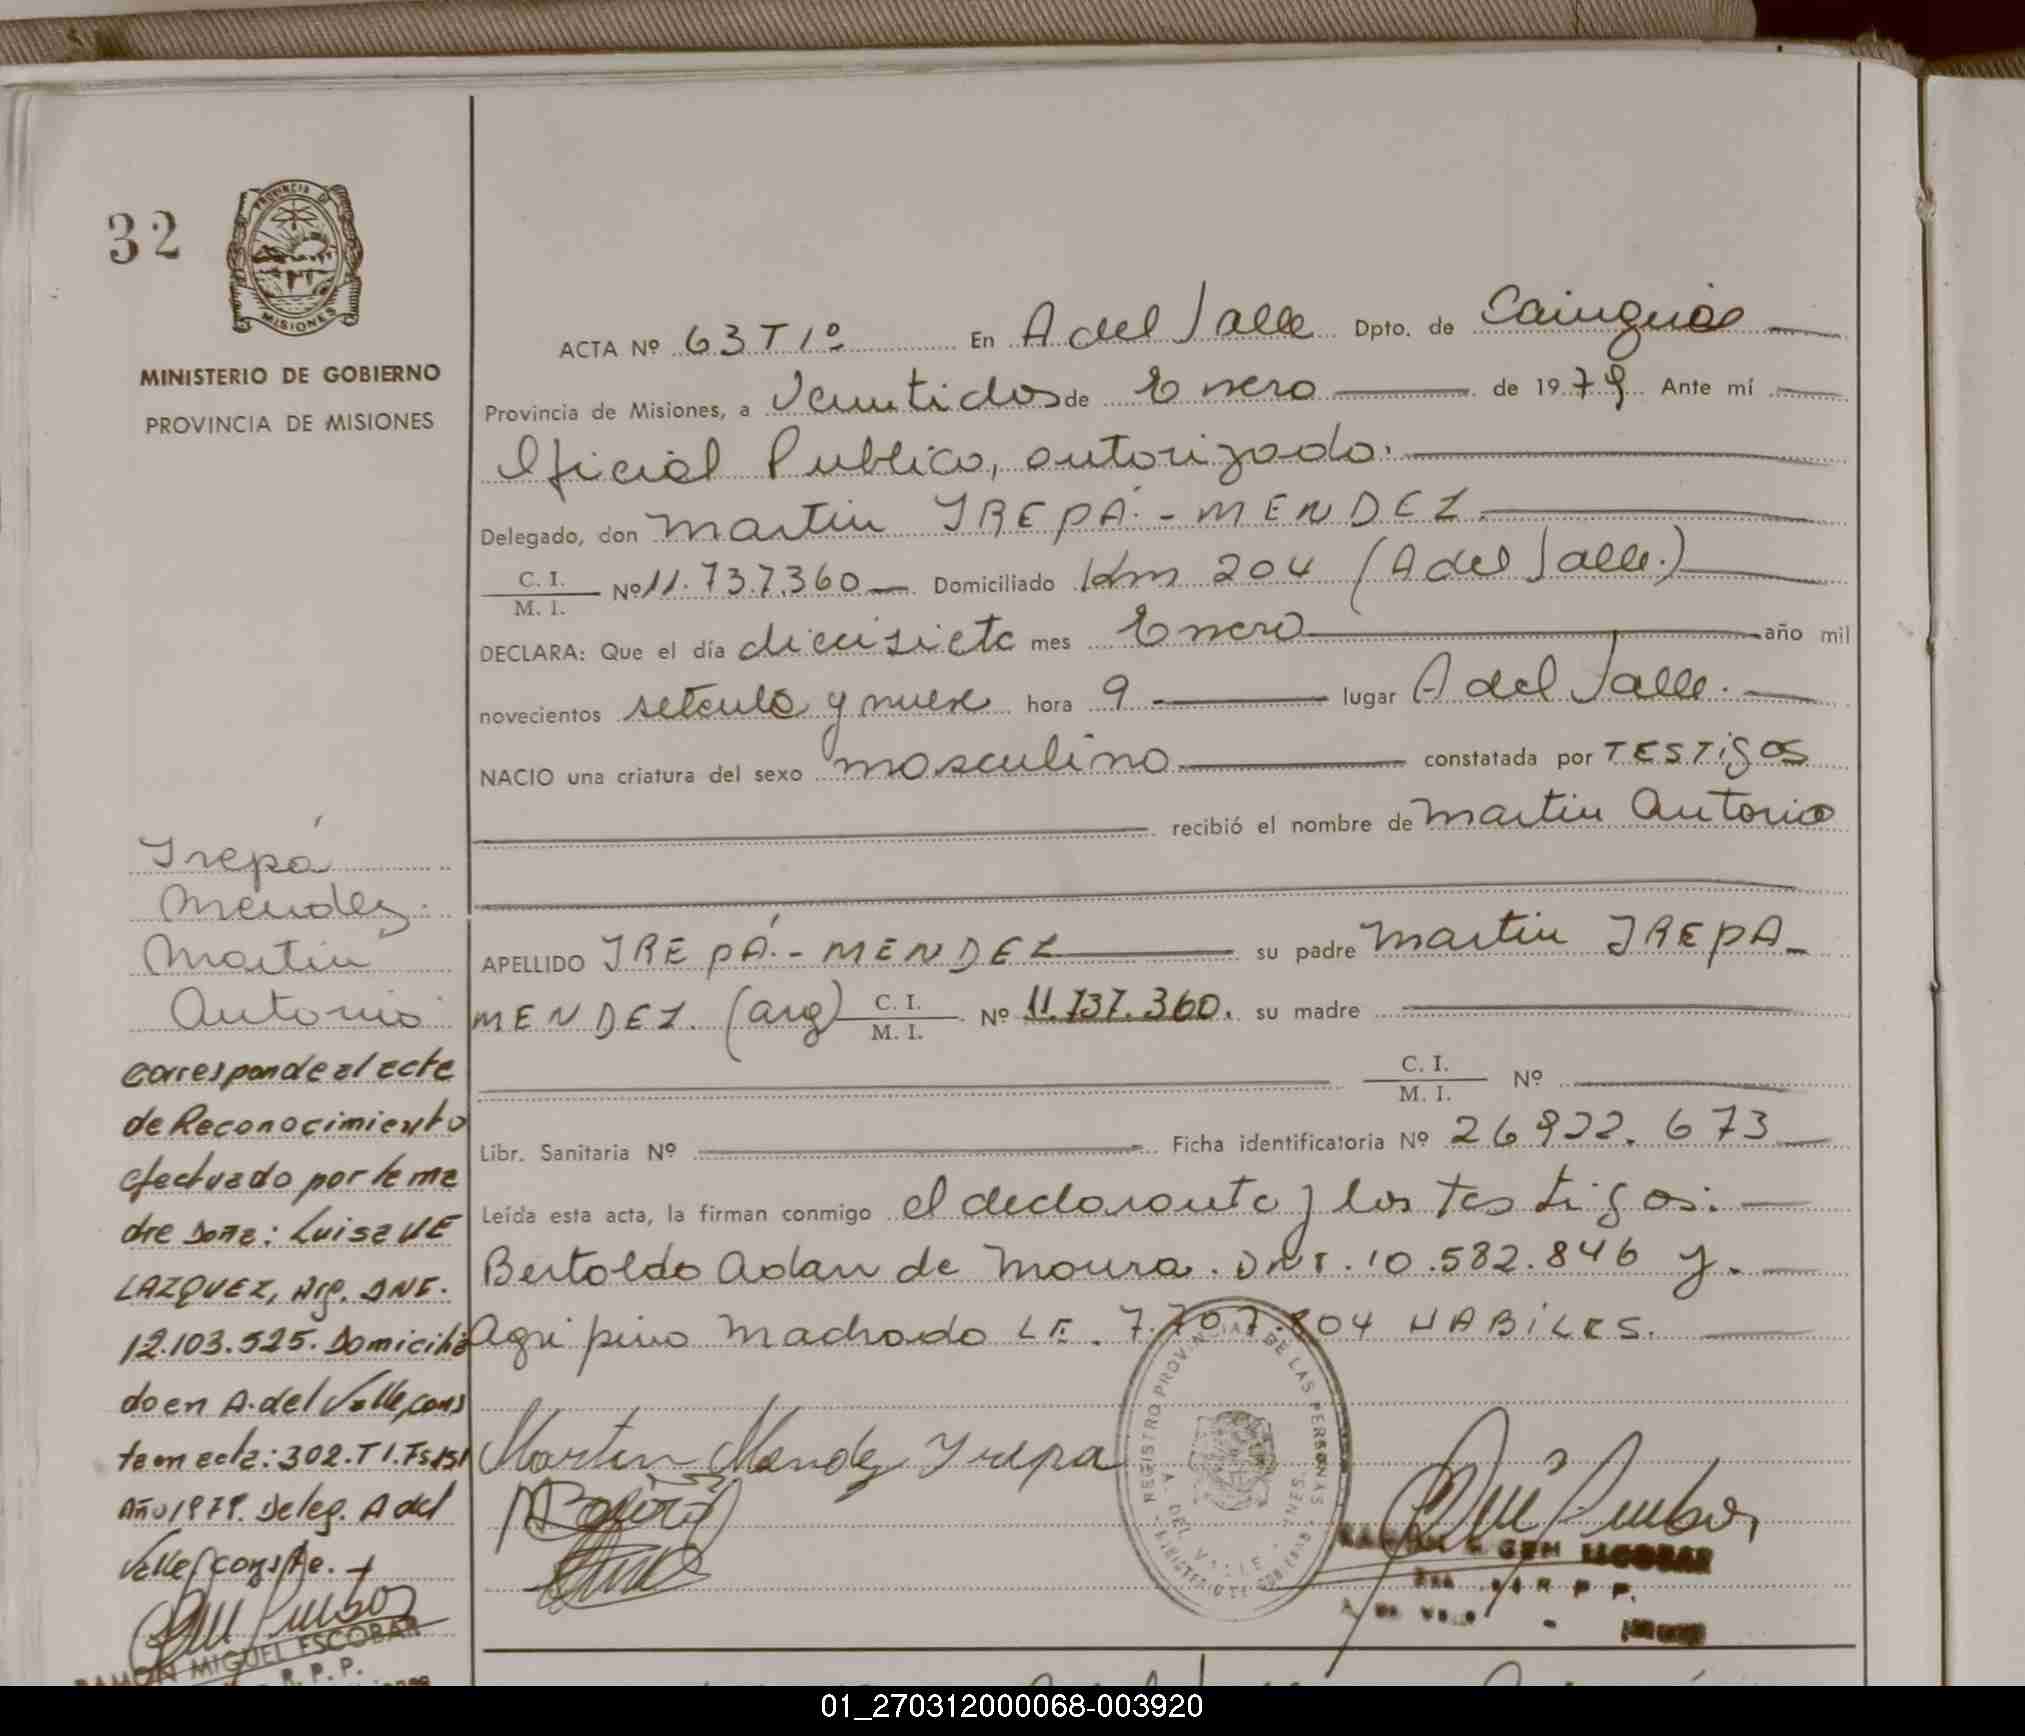 32
PROVINCIA DE
MISIONES
MINISTERIO DE GOBIERNO
PROVINCIA DE MISIONES
ACTA Nº 63 T 1º En A del Valle Dpto. de Cainguás
Provincia de Misiones, a Veintidos de Enero de 1979 Ante mí
Oficial Publico, autorizado.
Delegado, don Martin YREPÁ - MENDEZ
C. I. / M. I. Nº 11.737.360 Domiciliado Km 204 (A del Valle.)
DECLARA: Que el día diecisiete mes Enero año mil
novecientos setenta y nueve hora 9 lugar A del Valle.
NACIO una criatura del sexo masculino constatada por TESTIGOS
recibió el nombre de Martin Antonio
APELLIDO YREPÁ - MENDEZ su padre Martin YREPA -
MENDEZ. (arg) C. I. / M. I. Nº 11.737.360. su madre
C. I. / M. I. Nº
Libr. Sanitaria Nº Ficha identificatoria Nº 26922.673
Leída esta acta, la firman conmigo el declarante y los testigos:
Bertoldo Adan de Moura. DNI. 10.582.846 y.
Agripino Machado LE. 7.707.804 HABILES.
Martin Mendez Yrepa
REGISTRO PROVINCIAL DE LAS PERSONAS
A. DEL VALLE
MINISTERIO DE GOBIERNO
Yrepá
Mendez
Martin
Antonio
corresponde al acta
de Reconocimiento
efectuado por la ma
dre Doña: Luisa VE
LAZQUEZ, Arg. DNI.
12.103.525. Domicilia
do en A. del Valle, cons
ta en acta: 302. T 1. Fs 151
Año 1979. Deleg. A del
Valle, conste.
RAMON MIGUEL ESCOBAR
R. P. P.
01_270312000068-003920